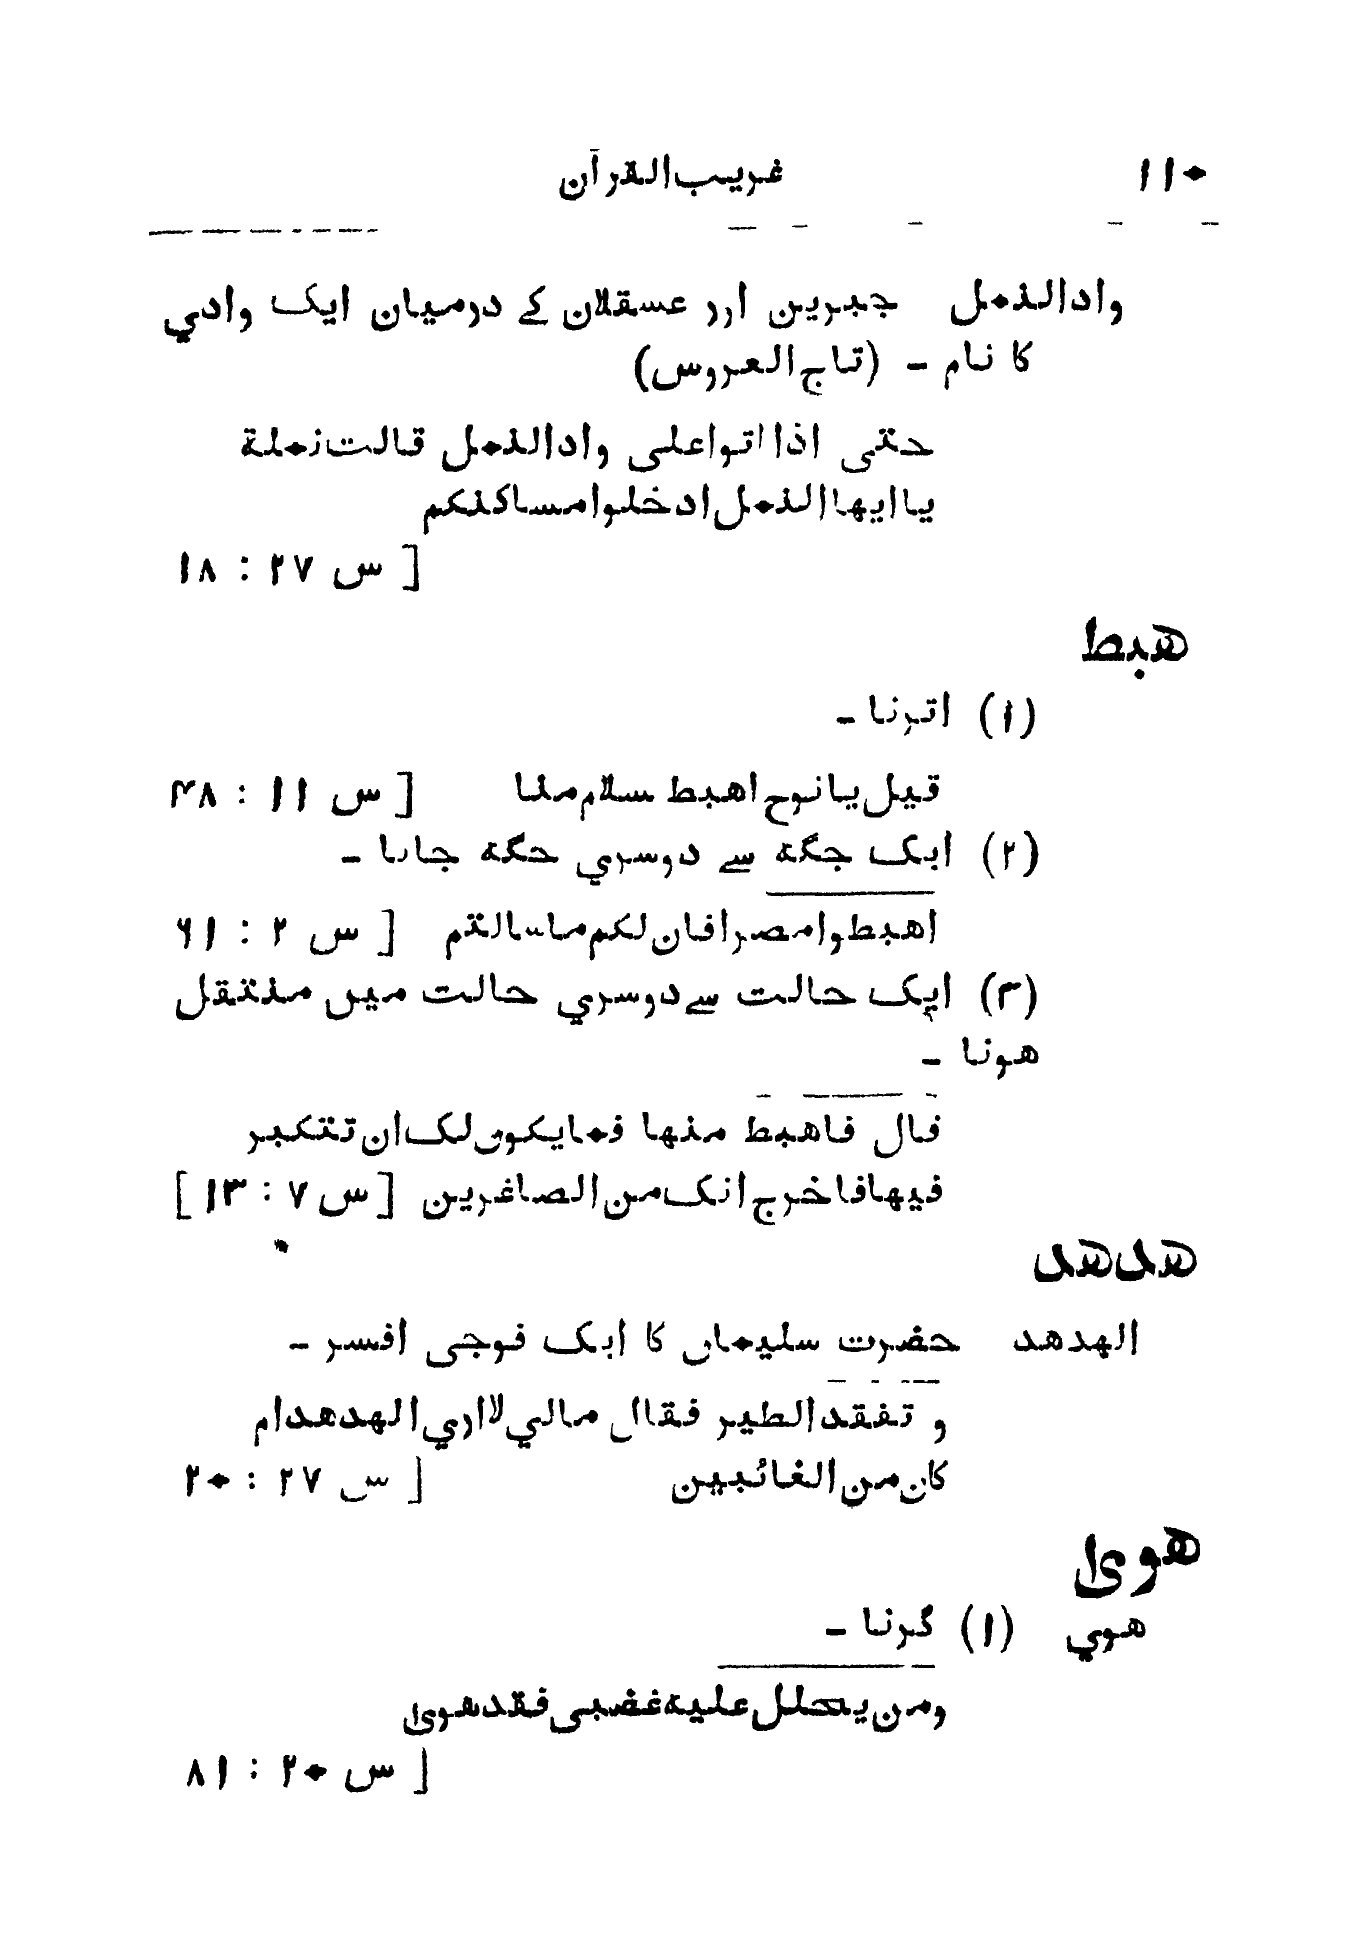 ۱۱۰ غریب القرآن
واد النمل جبرین اور عسقلان کے درمیان ایک وادي
کا نام - (تاج العروس)
حتی اذا اتوا علی واد النمل قالت نملة
یا ایها النمل ادخلوا مساکنکم
[ س ۲۷ : ۱۸
هبط
(۱) اترنا -
قیل یا نوح اهبط سلام منا [ س ۱۱ : ۴۸
(۲) ایک جگه سے دوسري جگه جانا -
اهبطوا مصرا فان لکم ما سالتم [ س ۲ : ۶۱
(۳) ایک حالت سے دوسري حالت میں منتقل
هونا -
قال فاهبط منها فما یکون لک ان تتکبر
فیها فاخرج انک من الصاغرین [ س ۷ : ۱۳ ]
هدهد
الهدهد حضرت سلیمان کا ایک فوجی افسر -
و تفقد الطیر فقال مالي لا اري الهدهد ام
کان من الغائبین [ س ۲۷ : ۲۰
هوی
هوي (۱) گرنا -
ومن یحلل علیه غضبی فقد هوی
[ س ۲۰ : ۸۱